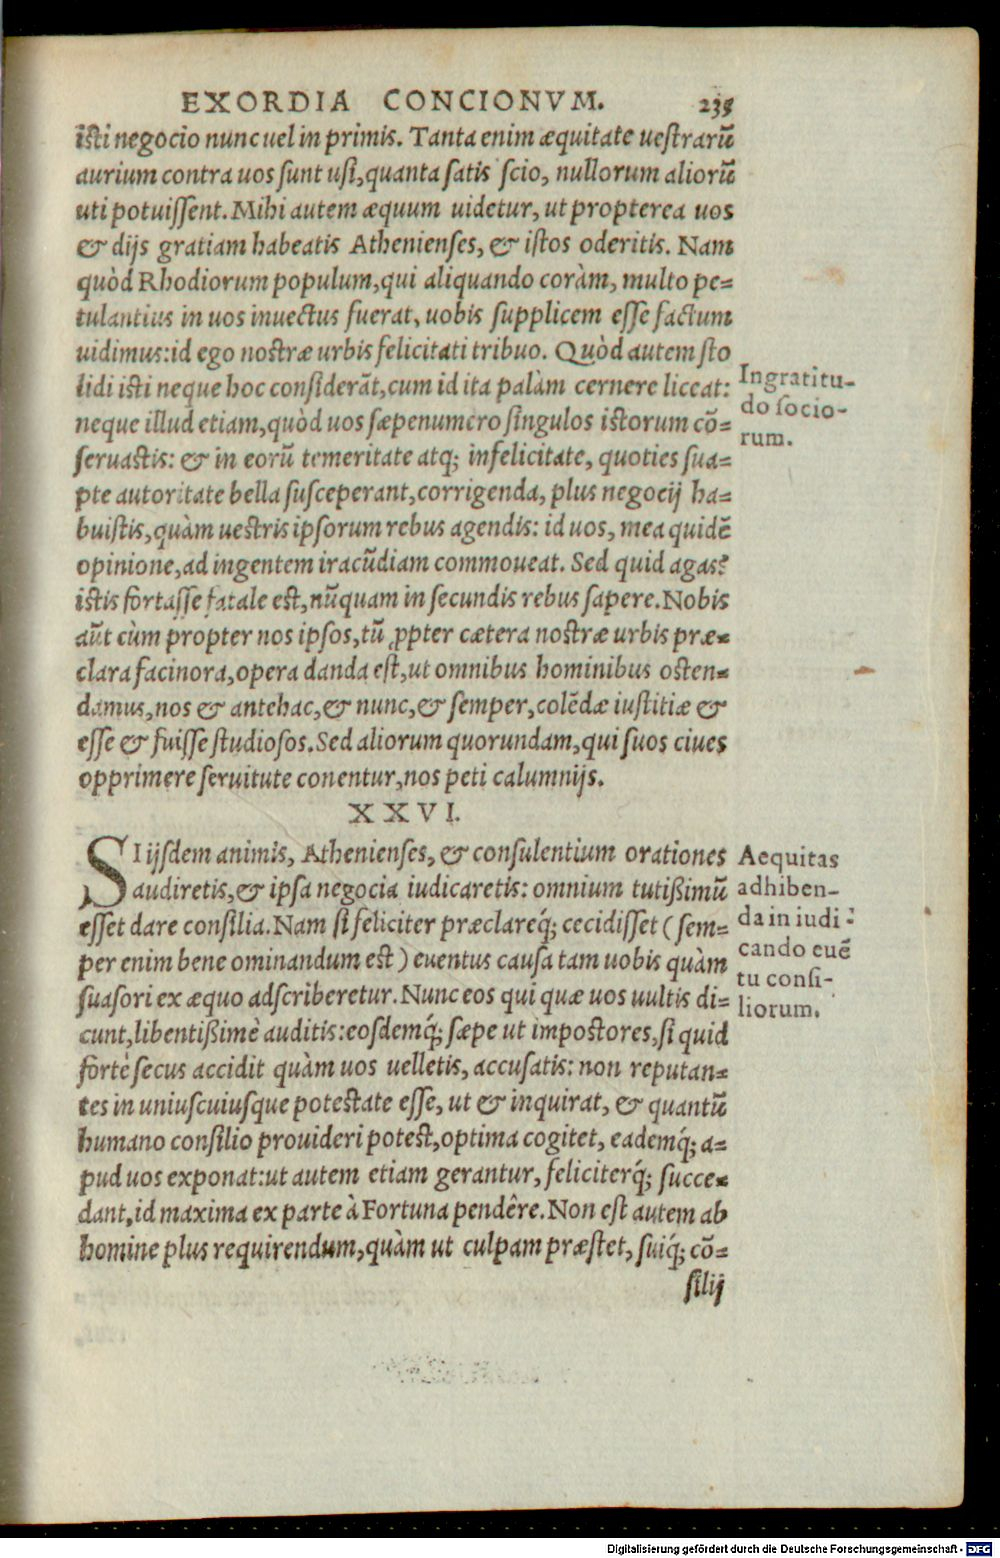 EXORDIA CONCIONVM. 235
isti negocio nunc uel in primis. Tanta enim æquitate uestrarũ
aurium contra uos sunt usi, quanta satis scio, nullorum aliorũ
uti potuissent. Mihi autem æquum uidetur, ut propterea uos
& dijs gratiam habeatis Athenienses, & istos oderitis. Nam
quòd Rhodiorum populum, qui aliquando coràm, multo pe=
tulantius in uos inuectus fuerat, uobis supplicem esse factum
uidimus: id ego nostræ urbis felicitati tribuo. Quòd autem sto
lidi isti neque hoc considerãt, cum id ita palàm cernere liceat:
neque illud etiam, quòd uos sæpenumero singulos istorum cõ=
seruastis: & in eorũ temeritate atq; infelicitate, quoties sua=
pte autoritate bella susceperant, corrigenda, plus negocij ha=
buistis, quàm uestris ipsorum rebus agendis: id uos, mea quidẽ
opinione, ad ingentem iracũdiam commoueat. Sed quid agas?
istis fortasse fatale est, nũquam in secundis rebus sapere. Nobis
aũt cùm propter nos ipsos, tũ ꝓpter cætera nostræ urbis præ=
clara facinora, opera danda est, ut omnibus hominibus osten=
damus, nos & antehac, & nunc, & semper, colẽdæ iustitiæ &
esse & fuisse studiosos. Sed aliorum quorundam, qui suos ciues
opprimere seruitute conentur, nos peti calumnijs.
Ingratitu-
do socio-
rum.
XXVI.
SI ijsdem animis, Athenienses, & consulentium orationes
audiretis, & ipsa negocia iudicaretis: omnium tutißimũ
esset dare consilia. Nam si feliciter præclareq́; cecidisset (sem=
per enim bene ominandum est) euentus causa tam uobis quàm
suasori ex æquo adscriberetur. Nunc eos qui quæ uos uultis di=
cunt, libentißimè auditis: eosdemq́; sæpe ut impostores, si quid
fortè secus accidit quàm uos uelletis, accusatis: non reputan=
tes in uniuscuiusque potestate esse, ut & inquirat, & quantũ
humano consilio prouideri potest, optima cogitet, eademq́; a=
pud uos exponat: ut autem etiam gerantur, feliciterq́; succe=
dant, id maxima ex parte à Fortuna pendêre. Non est autem ab
homine plus requirendum, quàm ut culpam præstet, suiq́; cõ=
silij
Aequitas
adhiben-
da in iudi-
cando euẽ
tu consi-
liorum.
Digitalisierung gefördert durch die Deutsche Forschungsgemeinschaft - DFG